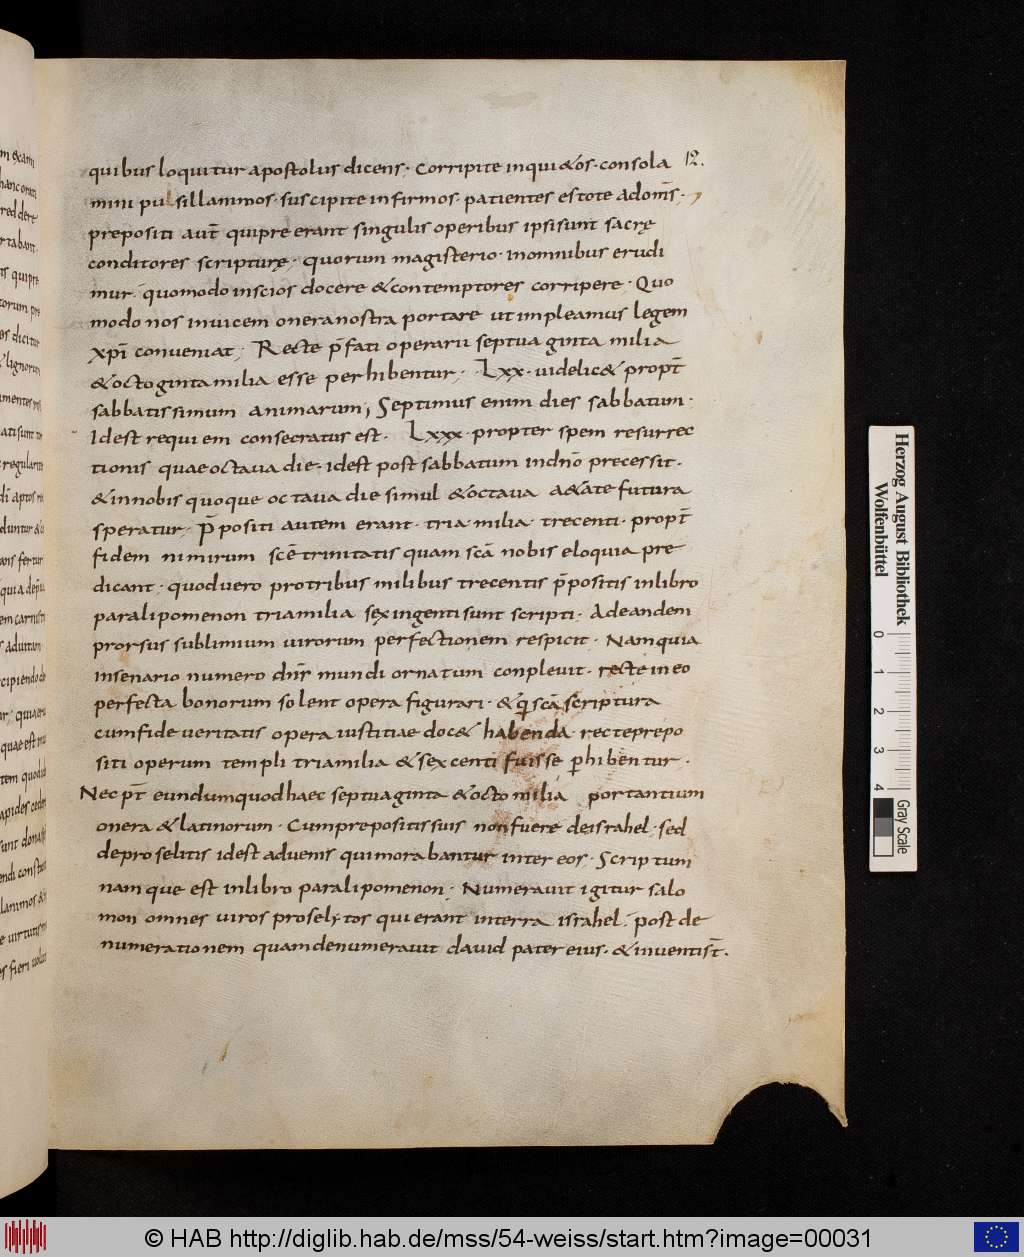 12.
quibus loquitur apostolus dicens· Corripite inqui&os· consola
mini pusillanimos· suscipite infirmos· patientes estote adom̄s·
prepositi aut̄ quipre erant singulis operibus ipsisunt sacrę
conditores scripturę· quorum magisterio· inomnibus erudi
mur· quomodo inscios docere &contemptores corripere· Quo
modo nos inuicem oneranostra portare ut impleamus legem
xp̄i conueniat; Recte p̄fati operarii septua ginta milia
&octoginta milia esse perhibentur; Lxx· uidelic& propt̄
sabbatissimum animarum; Septimus enim dies sabbatum·
Idest requiem consecratus est· Lxxx· propter spem resurrec
tionis quae octaua die· idest post sabbatum indn̄o precessit·
&innobis quoque octaua die simul &octaua a&ate futura
speratur· P̄positi autem erant· tria milia trecenti· propt̄
fidem nimirum scē trinitatis quam scā nobis eloquia pre
dicant· quoduero protribus milibus trecentis p̄positis inlibro
paralipomenon triamilia sexingenti sunt scripti· Adeandem
prorsus sublimium uirorum perfectionem respicit· Namquia
insenario numero dn̄s mundi ornatum conpleuit· recte in eo
perfecta bonorum solent opera figurari· &q̄ scā scriptura
cumfide ueritatis opera iustitiae doc& habenda recteprepo
siti operum templi triamilia &sexcenti fuisse p̄hibentur·
Nec p̄t eundumquodhaec septuaginta &octo milia portantium
onera &latinorum· Cumprepositissuis nonfuere deisrahel· sed
deproselitis idest aduenis quimorabantur inter eos· Scriptum
namque est inlibro paralipomenon· Numerauit igitur salo
mon omnes uiros proselytos qui erant interra israhel· post de
numerationem quamdenumerauit dauid pater eius· &inuentis̄t·
Herzog August Bibliothek
Wolfenbüttel
0 1 2 3 4
Gray Scale
© HAB http://diglib.hab.de/mss/54-weiss/start.htm?image=00031